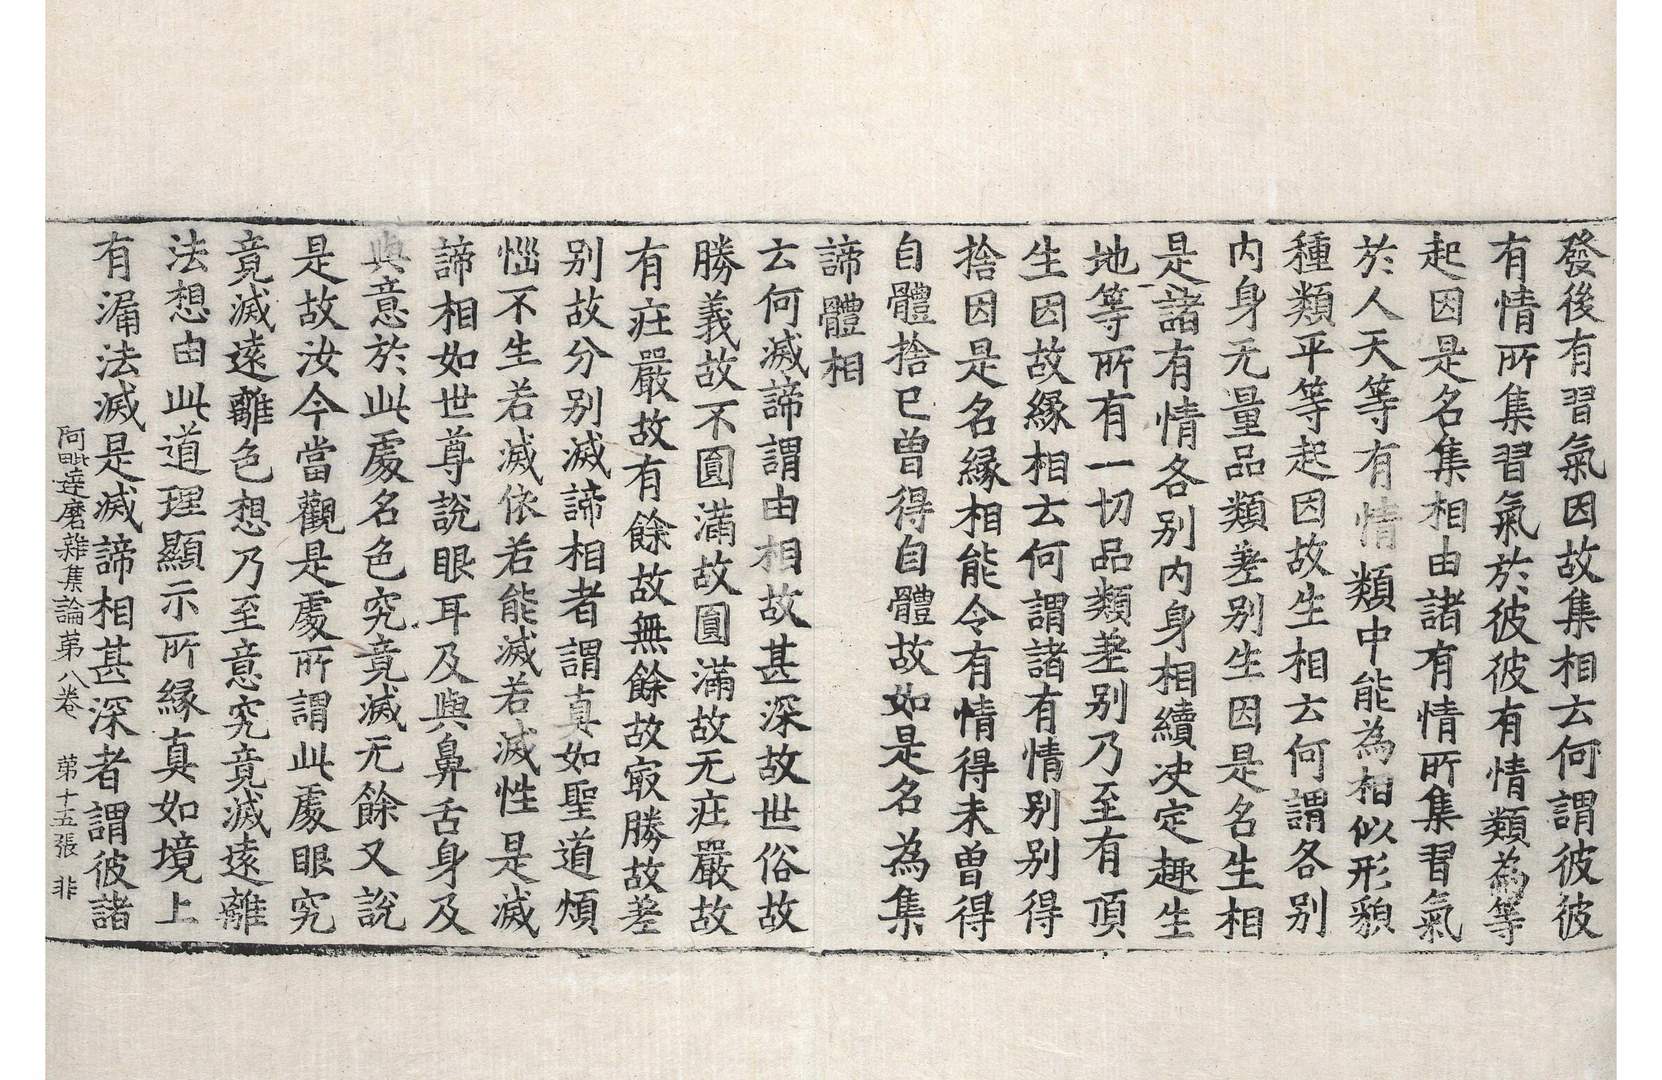 發後有習氣因故集相云何謂彼彼
有情所集習氣於彼彼有情類為等
起因是名集相由諸有情所集習氣
於人天等有情類中能為相似形貌
種類平等起因故生相云何謂各別
内身无量品類差別生因是名生相
是諸有情各別内身相續决定趣生
地等所有一切品類差別乃至有頂
生因故緣相云何謂諸有情別別得
捨因是名緣相能令有情得未曾得
自體捨已曾得自體故如是名為集
諦體相
云何滅諦謂由相故甚深故世俗故
勝義故不圓滿故圓滿故无庄嚴故
有庄嚴故有餘故無餘故㝡勝故差
別故分別滅諦相者謂真如聖道煩
惱不生若滅依若能滅若滅性是滅
諦相如世尊說眼耳及與鼻舌身及
與意於此處名色究竟滅无餘又說
是故汝今當觀是處所謂此處眼究
竟滅遠離色想乃至意究竟滅遠離
法想由此道理顯示所緣真如境上
有漏法滅是滅諦相甚深者謂彼諸
阿毗達磨雜集論第八卷 第十五張 非